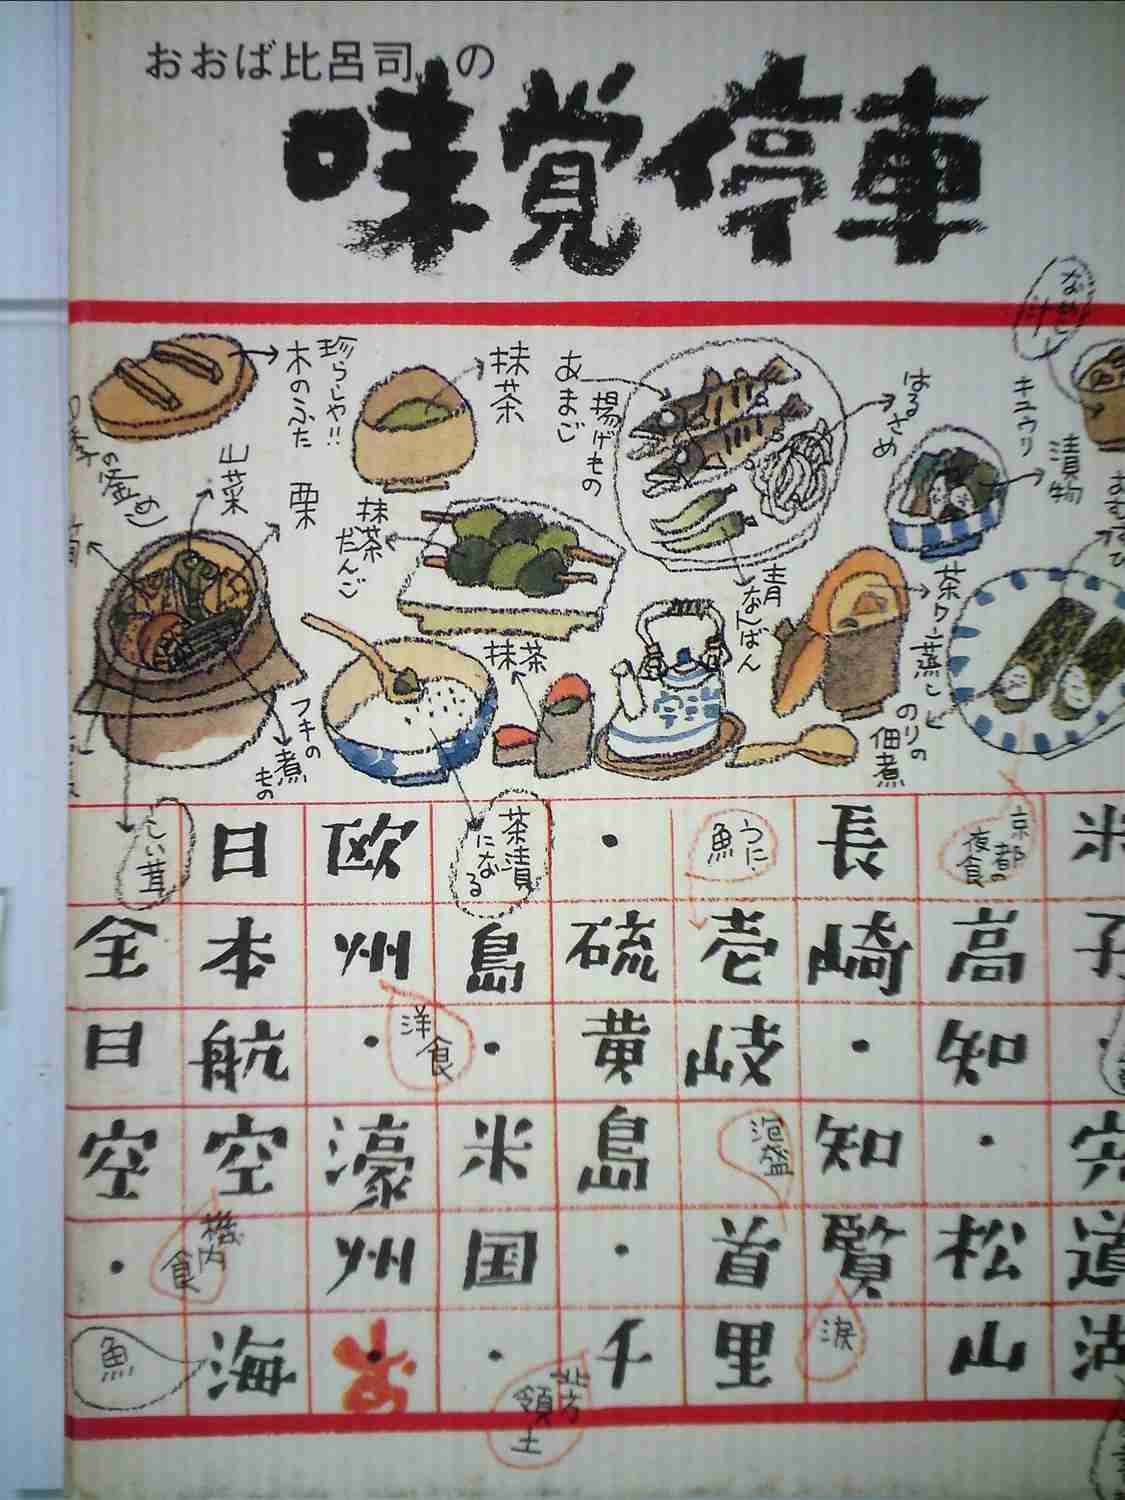 おおば比呂司の
味覚停車
なめこ汁
珍らしや!!
木のふた
抹茶
あまご
揚げもの
はるさめ
キュウリ
漬物
おむすび
山菜
栗
抹茶だんご
青なんばん
茶ワン蒸し
のりの佃煮
抹茶
宇治
フキの煮もの
しい茸
茶漬になる
うに、魚
京都の夜食
米子・
宍道湖
高知・松山
長崎・知覧
壱岐
首里
・硫黄島・千
島・米国・
欧州・濠州
日本航空
海
全日空・
洋食
泡盛
機内食
涙
魚
北方領土